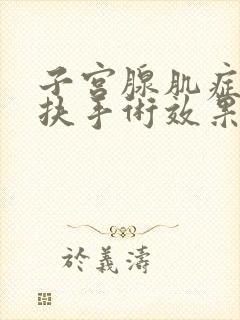 子宫腺肌症
扶手術效果
於義濤